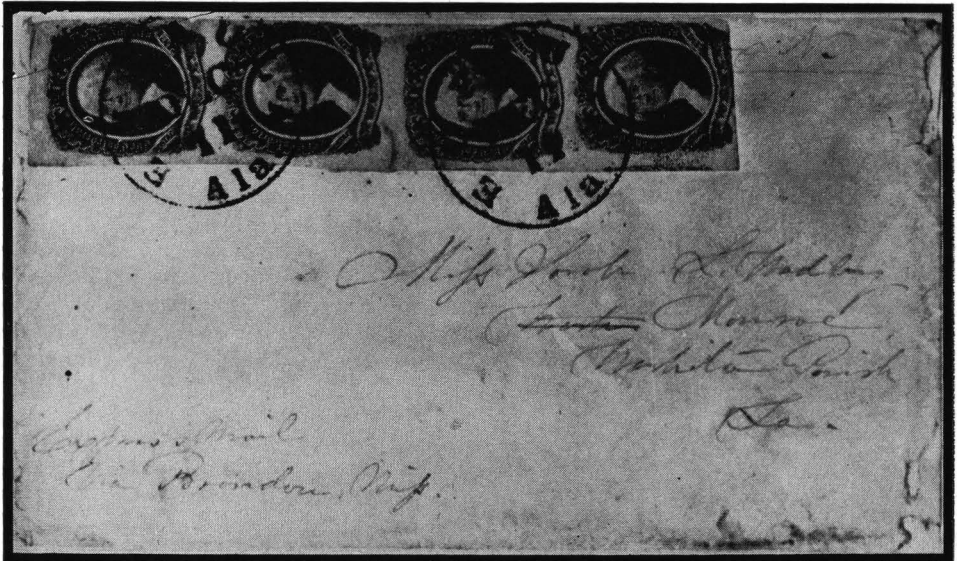 E 11
Ala
E 11
Ala
Miss Sarah L. Wadley
Monroe
Washita Parish
La.
Express Mail
Via Brandon, Miss.